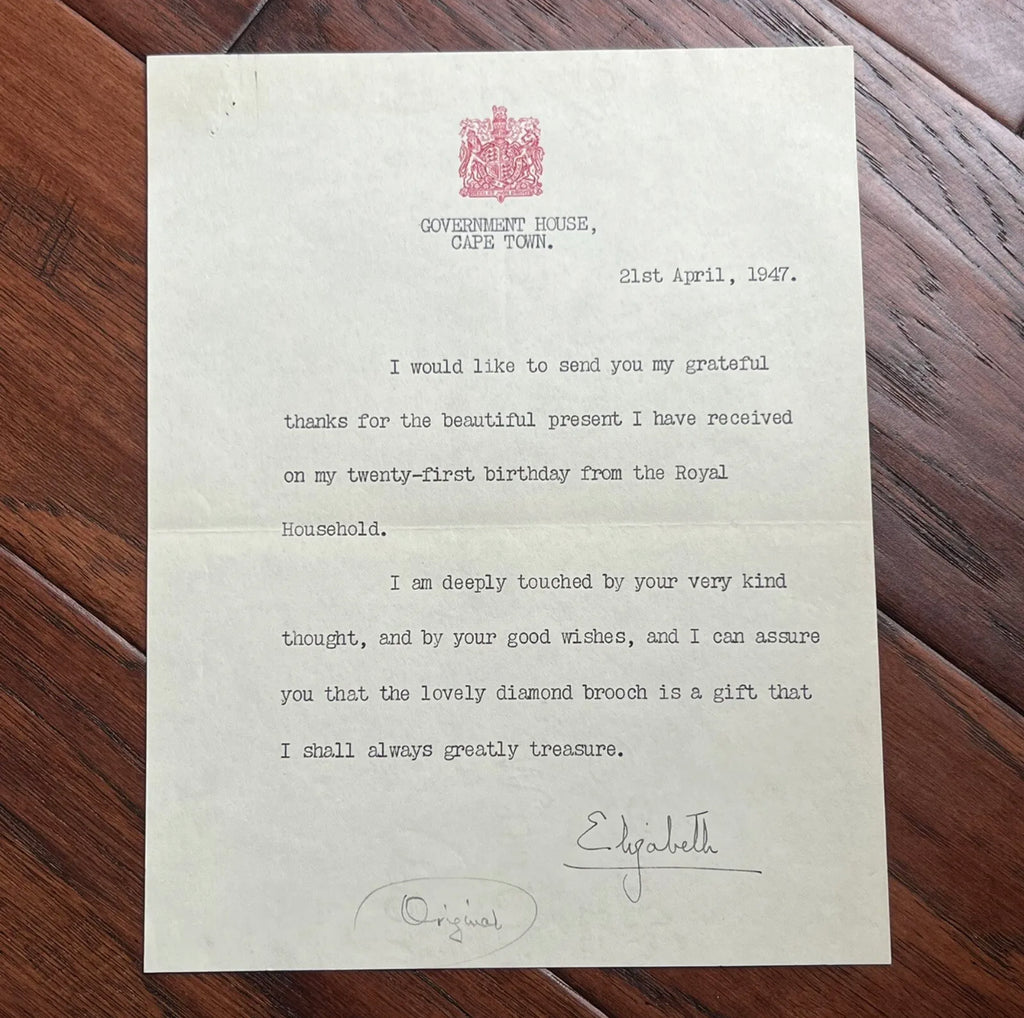 GOVERNMENT HOUSE,
CAPE TOWN.
21st April, 1947.
I would like to send you my grateful
thanks for the beautiful present I have received
on my twenty-first birthday from the Royal
Household.
I am deeply touched by your very kind
thought, and by your good wishes, and I can assure
you that the lovely diamond brooch is a gift that
I shall always greatly treasure.
Elizabeth
Original